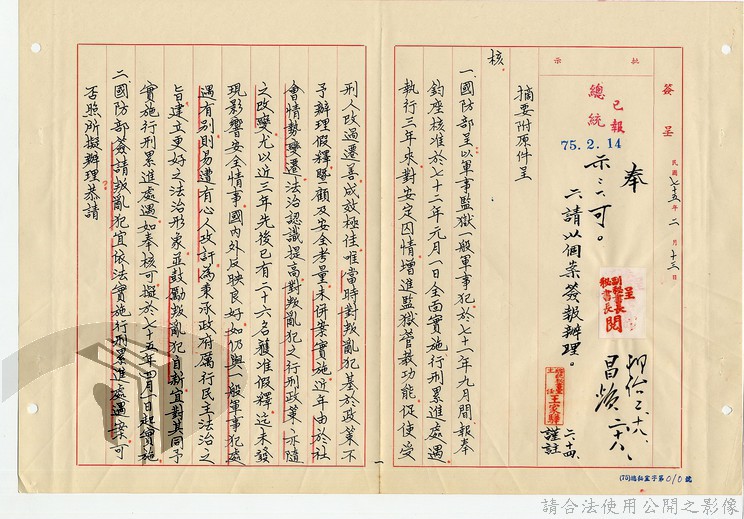 簽呈
民國七十五年二月十三日
批示
已報
總統
75.2.14
奉
示:「可。
六請以個案簽報辦理。
呈
副秘書長
秘書長
閱
王家驊
謹註
二.十四.
摘要附原件呈
核。
一國防部呈以軍事監獄一般軍事犯於七十一年九月間報奉
鈞座核准於七十二年元月一日全面實施行刑累進處遇
執行三年來對安定囚情增進監獄管教功能促使受
刑人改過遷善成效極佳唯當時對叛亂犯基於政策不
予辦理假釋賸顧及安全考量未併案實施近年由於社
會情勢變遷法治認識提高對叛亂犯之行刑政策亦隨
之改變尤以近三年先後已有二十六名獲准假釋迄未發
現影響安全情事國內外反映良好如仍與一般軍事犯處
遇有別則易遭有心人攻訐為秉承政府厲行民主法治之
旨建立更好之法治形象並鼓勵叛亂犯自新宜對其同予
實施行刑累進處遇如奉核可擬於七十五年四月一日起實施
二國防部簽請叛亂犯宜依法實施行刑累進處遇案可
否照所擬辦理恭請
一
(75)機秘室字第010號
請合法使用公開之影像